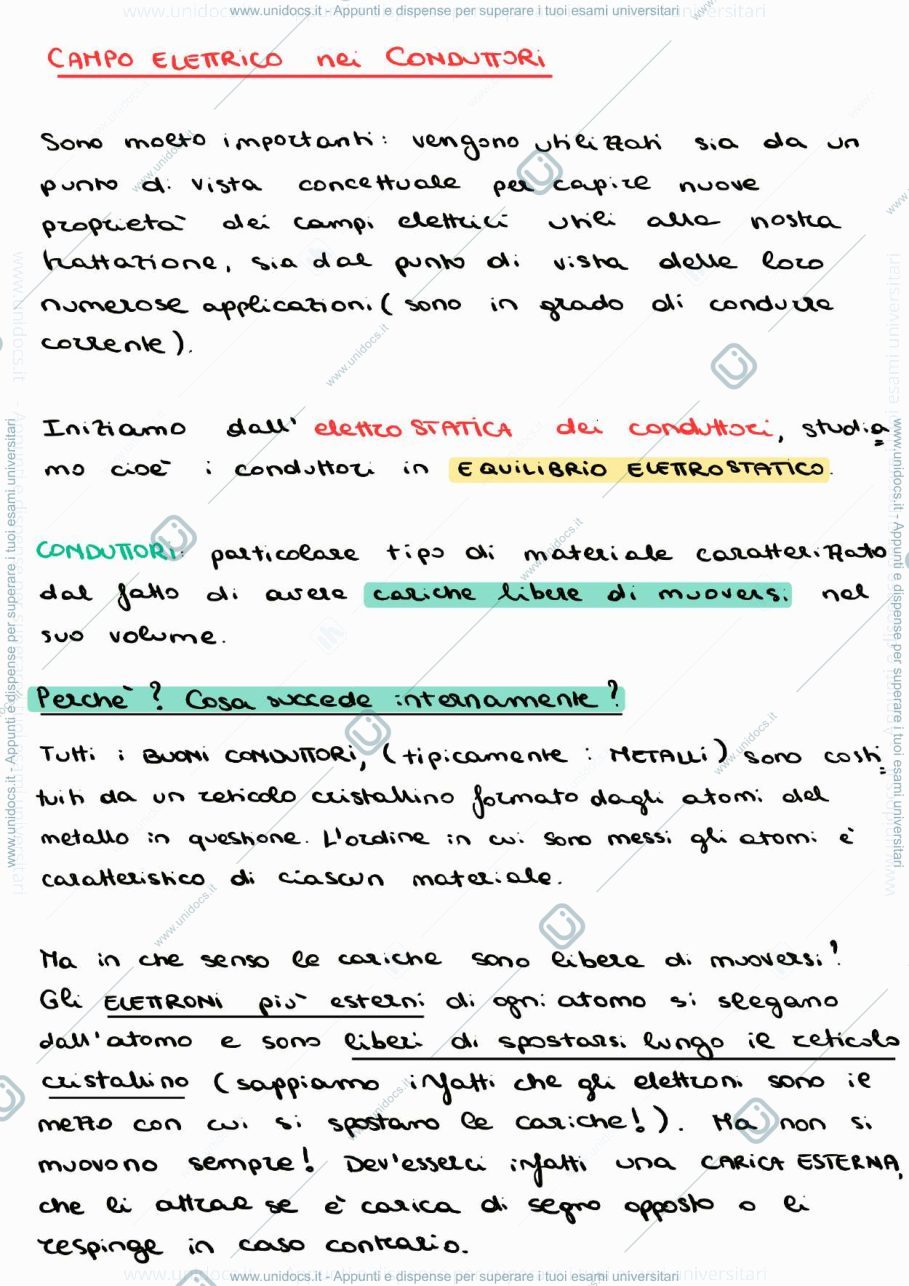 www.unidocs.it - Appunti e dispense per superare i tuoi esami universitari
CAMPO ELETTRICO nei CONDUTTORI
Sono molto importanti: vengono utilizzati sia da un
punto di vista concettuale per capire nuove
proprietà dei campi elettrici utili alla nostra
trattazione, sia dal punto di vista delle loro
numerose applicazioni (sono in grado di condurre
corrente).
Iniziamo dall' elettroSTATICA dei conduttori, studia
mo cioè i conduttori in EQUILIBRIO ELETTROSTATICO.
CONDUTTORI: particolare tipo di materiale caratterizzato
dal fatto di avere cariche libere di muoversi nel
suo volume.
Perchè? Cosa succede internamente?
Tutti i BUONI CONDUTTORI, (tipicamente: METALLI) sono costi
tuiti da un reticolo cristallino formato dagli atomi del
metallo in questione. L'ordine in cui sono messi gli atomi è
caratteristico di ciascun materiale.
Ma in che senso le cariche sono libere di muoversi?
Gli ELETTRONI più esterni di ogni atomo si slegano
dall'atomo e sono liberi di spostarsi lungo il reticolo
cristallino (sappiamo infatti che gli elettroni sono il
mezzo con cui si spostano le cariche!). Ma non si
muovono sempre! Dev'esserci infatti una CARICA ESTERNA,
che li attrae se è carica di segno opposto o li
respinge in caso contrario.
www.unidocs.it - Appunti e dispense per superare i tuoi esami universitari
www.unidocs.it - Appunti e dispense per superare i tuoi esami universitari
www.unidocs.it - Appunti e dispense per superare i tuoi esami universitari